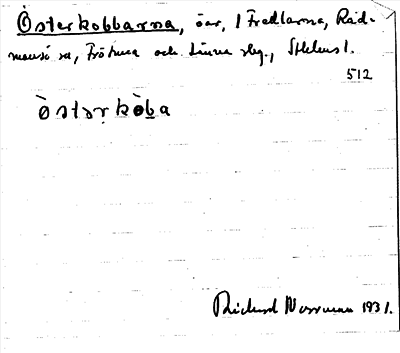 Österkobbarna, öar, I Fredlarna, Råd-
mansö sn, Frötuna och Länna slg., Sthlms l.
512
Ò̀stərkòba
Rickard Norrman 1931.